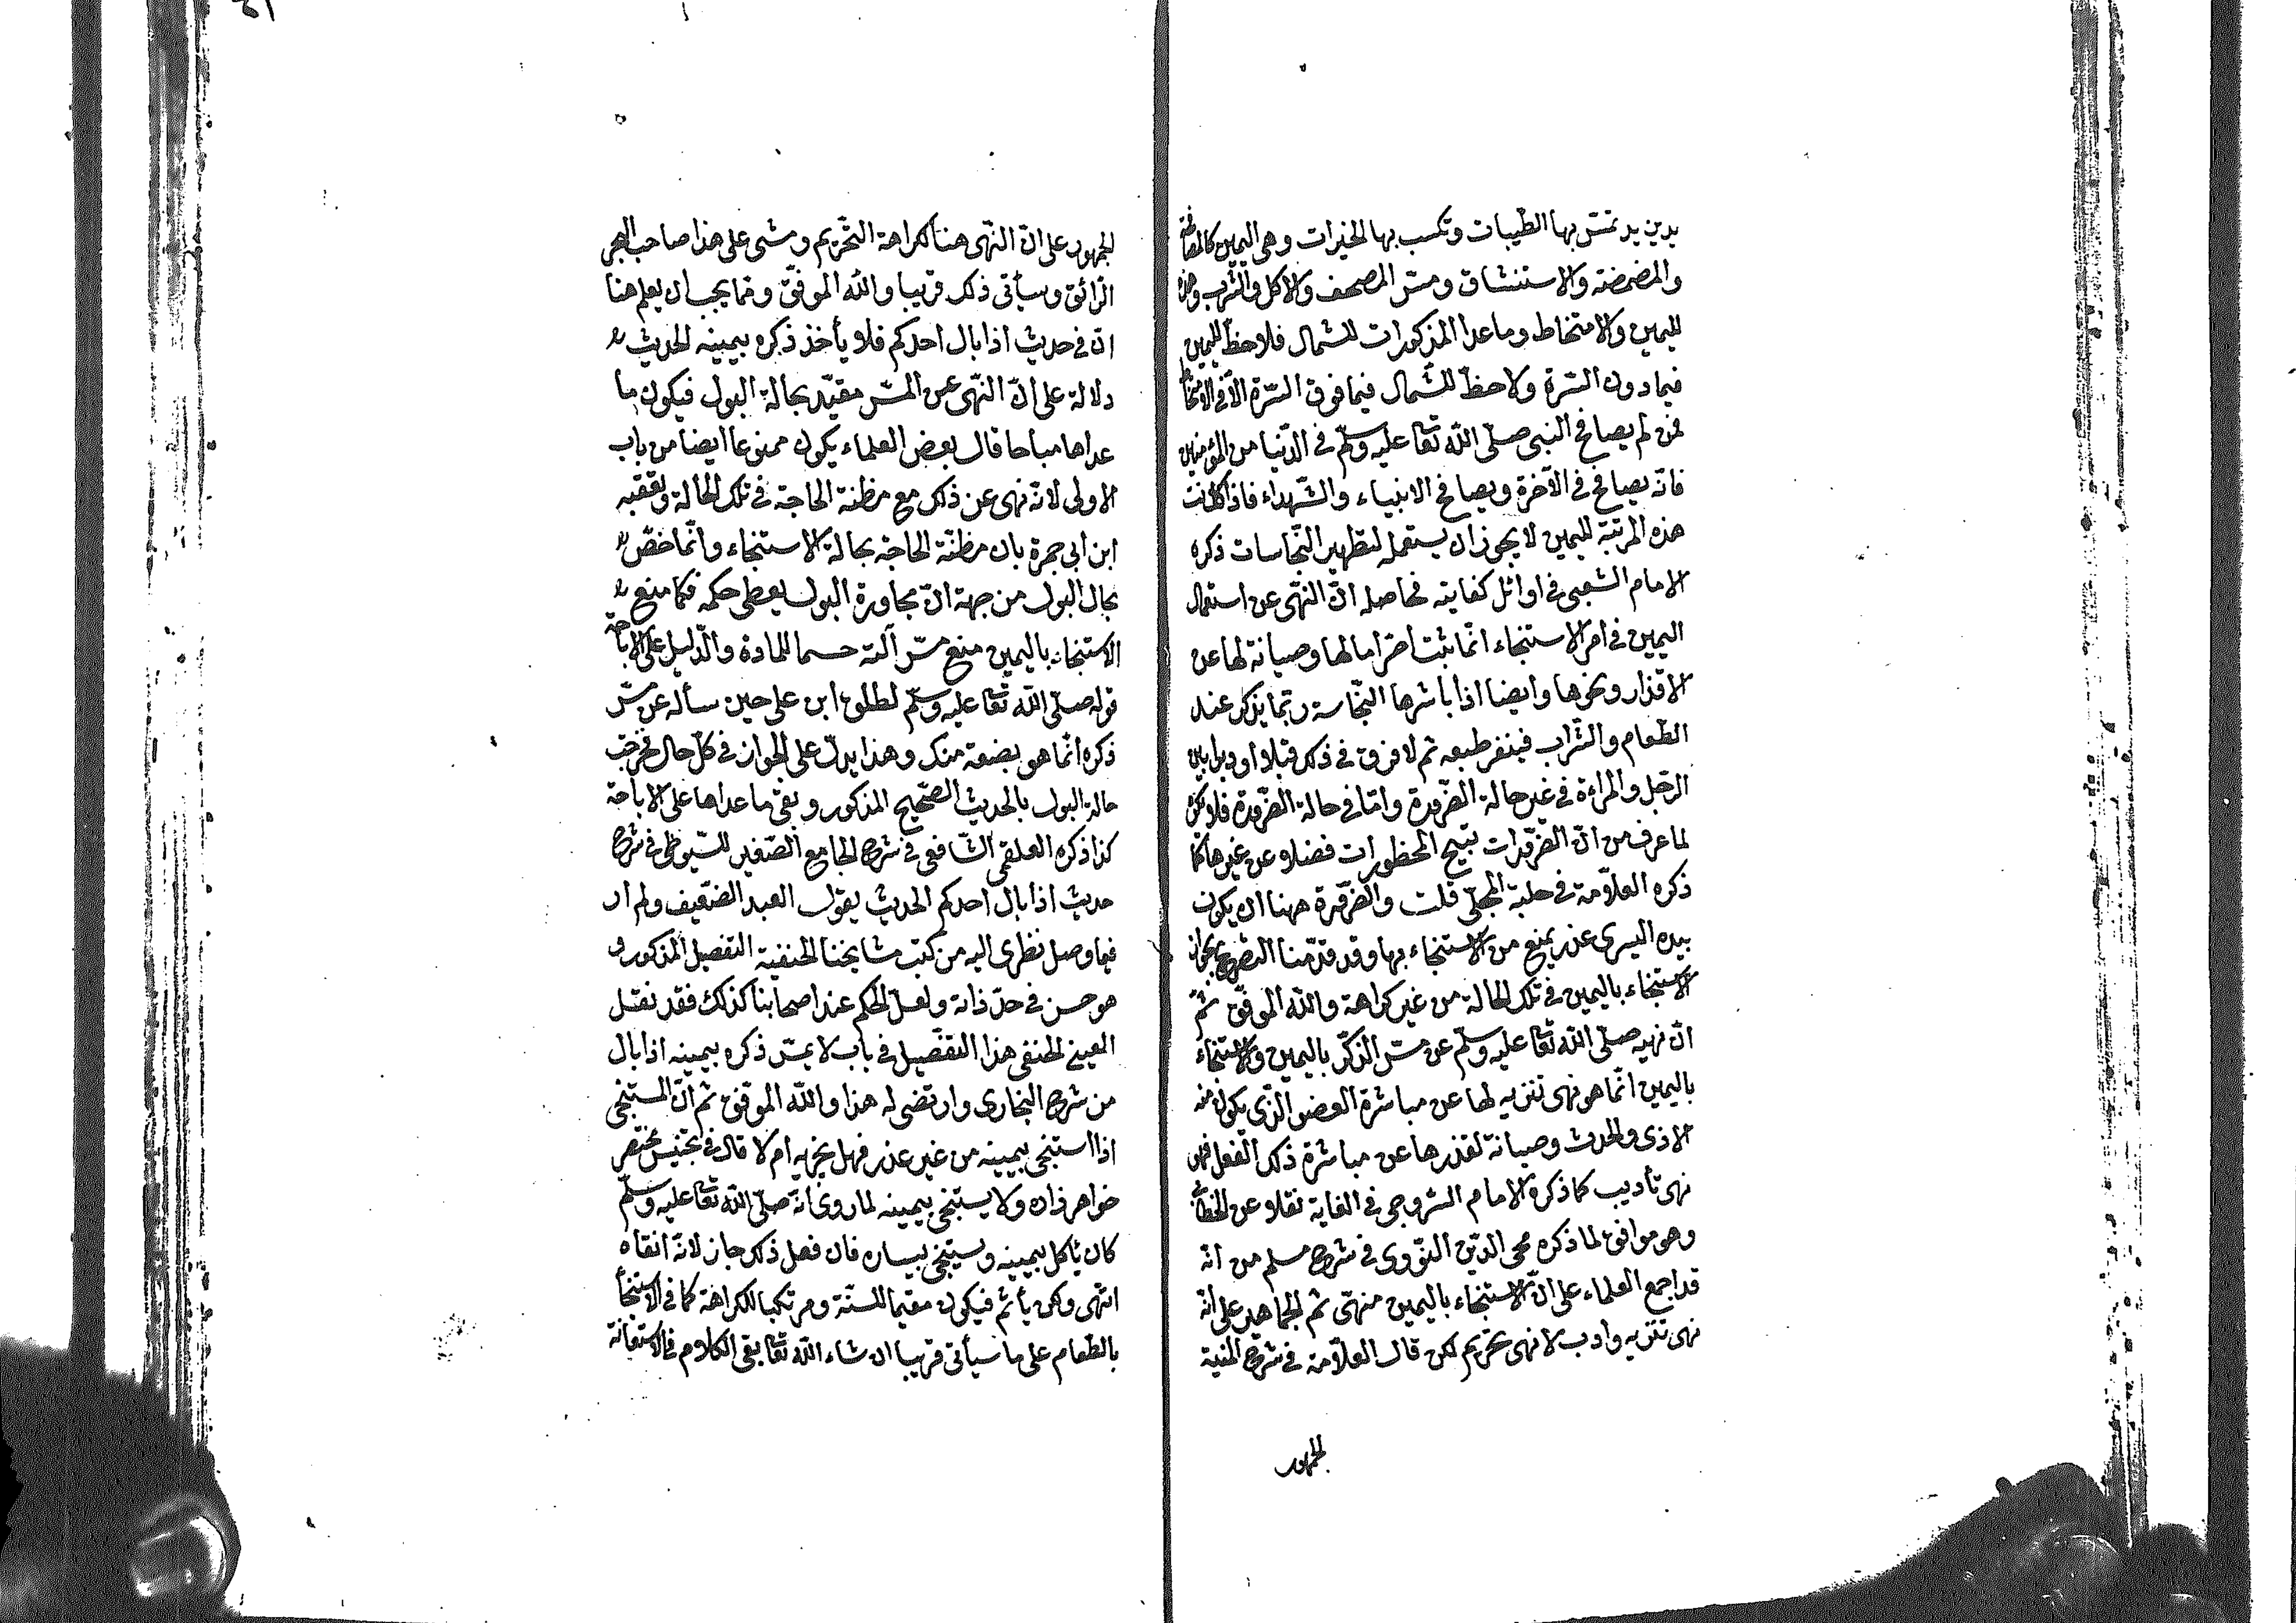 يدين يد تمسّ بها الطّيبات وتكسب بها الخيرات وهى اليمين كالمصافحة
والمضمضة والاستنشاق ومسّ المصحف والاكل والشرب وهذه
لليمين والامتخاط وما عدا المذكورات للشمال فلا حظّ لليمين
فيما دون السّرة ولا حظّ للشمال فيما فوق السّرة الّا فى الامتخاط
فمن لم يصافح النبى صلّى الله تعا عليه وسلّم فى الدّنيا من المؤمنين
فانّه يصافح فى الآخرة ويصافح الانبياء والشّهداء فاذا كانت
هذه المرتبة لليمين لا يجوز ان يستعمل لتطهير النّجاسات ذكره
الامام الشعبى فى اوائل كفايته فحاصله انّ النّهى عن استعمال
اليمين فى امر الاستنجاء انّما ثبت احتراما لها وصيانة لها عن
الاقذار ونحوها وايضا اذا باشرها النّجاسة ربّما يذكر عند
الطّعام والشّراب فينفر طبعه ثم لا فرق فى ذلك قبلا او دبرا بين
الرّجل والمراءة فى غير حالة الضّرورة وامّا فى حالة الضّرورة فلا يكره
لما عرف من انّ الضّرورات تبيح المحظورات فضلا عن غيرها كما
ذكره العلاّمة فى حلبة المجلّى قلت والضّرورة ههنا ان يكون
بيده اليسرى عذر يمنع من الاستنجاء بها وقد قدّمنا التصريح بجواز
الاستنجاء باليمين فى تلك الحالة من غير كراهة والله الموفّق ثمّ
انّ نهيه صلّى الله تعا عليه وسلّم عن مسّ الذّكر باليمين والاستنجاء
باليمين انّما هو نهى تنزيه لها عن مباشرة العضو الّذى يكون منه
الاذى والحدث وصيانة لقدرها عن مباشرة ذلك الفعل فهى
نهى تأديب كما ذكره الامام السّروجى فى الغاية نقلا عن الخطّابى
وهو موافق لما ذكره محى الدّين النّووى فى شرح مسلم من انّه
قد اجمع العلماء على انّ الاستنجاء باليمين منهىّ ثم الجماهير على انّه
نهى تنزيه وادب لا نهى تحريم لكن قال العلاّمة فى شرح المنية
الجمهور
الجمهور على انّ النّهى هنا كراهة التّحريم ومشى على هذا صاحب البحر
الرّائق وسيأتى ذكره قريبا والله الموفّق وممّا يجب ان يعلم هنا
انّ فى حديث اذا بال احدكم فلا يأخذ ذكره بيمينه الحديث
دلالة على انّ النّهى عن المسّ مقيّد بحالة البول فيكون ما
عداها مباحا قال بعض العلماء يكون ممنوعا ايضا من باب
الاولى لانّه نهى عن ذلك مع مظنة الحاجة فى تلك الحالة وتعقبه
ابن ابى جمرة بان مظنّة الحاجة بحالة الاستنجاء وانّما خصّ
بحال البول من جهة انّ مجاورة البول يعطى حكمه فلما منع
الاستنجاء باليمين منع مسّ آلته حسما للمادة والدّليل على الاباحة
قوله صلّى الله تعا عليه وسلّم لطلق ابن على حين سأله عن مسّ
ذكره انّما هو بضعة منك وهذا يدلّ على الجواز فى كلّ حال فخرجت
حالة البول بالحديث الصّحيح المذكور وبقى ما عداها على الاباحة
كذا ذكره العلقمى الشّافعى فى شرح الجامع الصّغير للسّيوطى فى شرح
حديث اذا بال احدكم الحديث يقول العبد الضّعيف ولم ار
فيما وصل نظرى اليه من كتب مشايخنا الحنفية التفصيل المذكور و
هو حسن فى حدّ ذاته ولعلّ الحكم عند اصحابنا كذلك فقد نقل
العينى الحنفى هذا التفصيل فى باب لا يمسّ ذكره بيمينه اذا بال
من شرح البخارى وارتضى له هذا والله الموفّق ثم انّ المستنجى
اذا استنجى بيمينه من غير عذر فهل يجزيه ام لا قال فى تجنيس مختصر
خواهر زاده ولا يستنجى بيمينه لما روى انّه صلّى الله تعا عليه وسلّم
كان يأكل بيمينه ويستنجى بيساره فان فعل ذلك جاز لانّه انقاه
انتهى ولكن يأثم فيكون مقيما للسنّة ومرتكبا للكراهة كما فى الاستنجأ
بالطّعام على ما سيأتى قريبا ان شاء الله تعا بقى الكلام فى الاستعانة